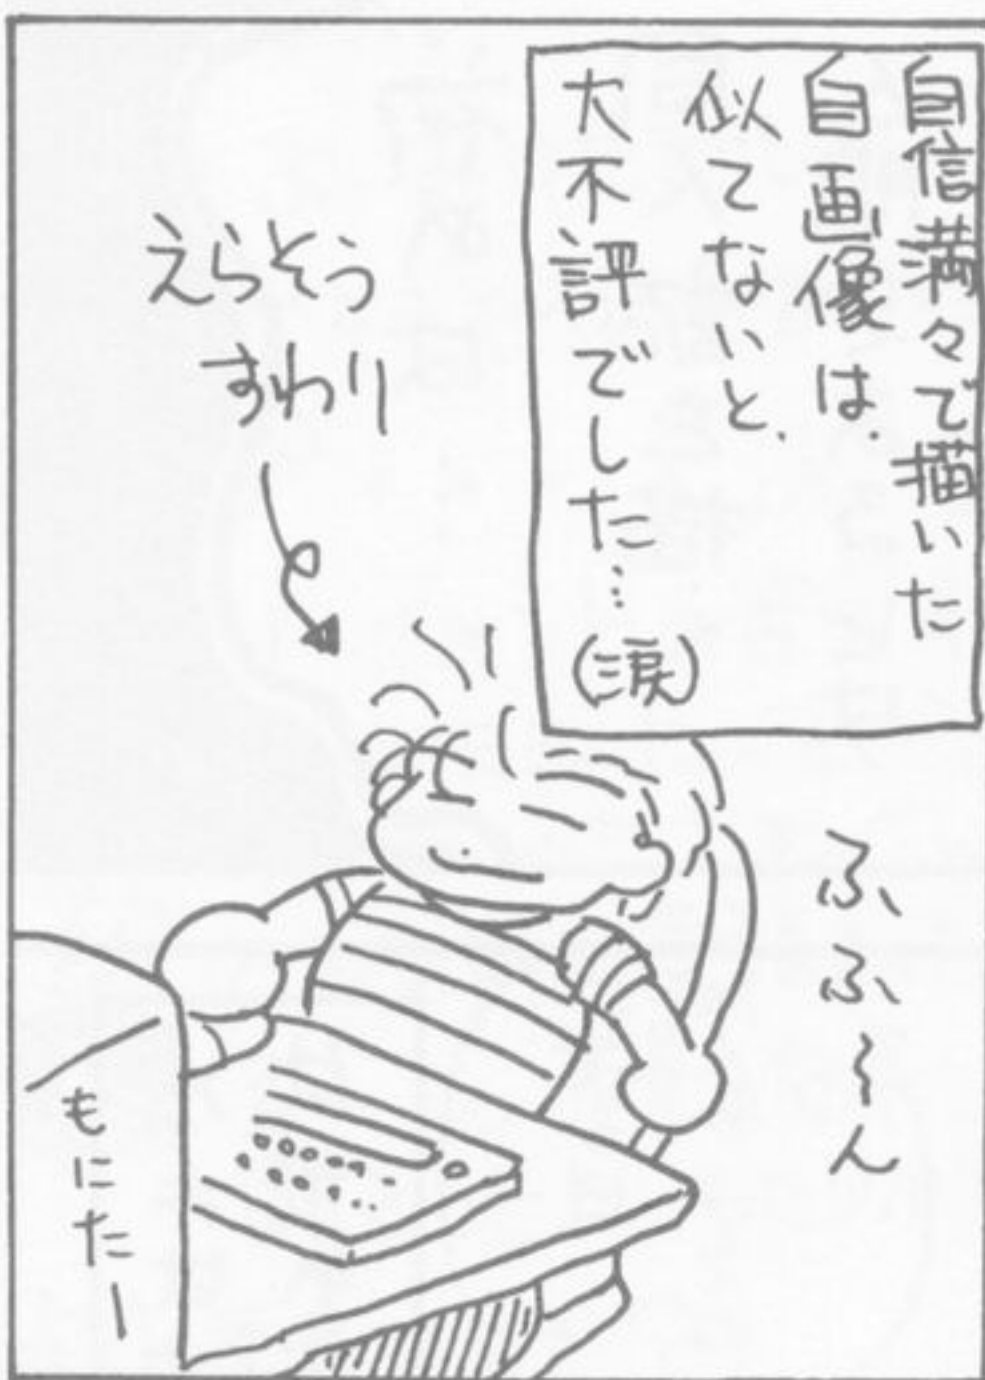 自信満々で描いた
自画像は、
似てないと、
大不評でした…(涙)
えらそう
すわり
ふふ~ん
もにたー